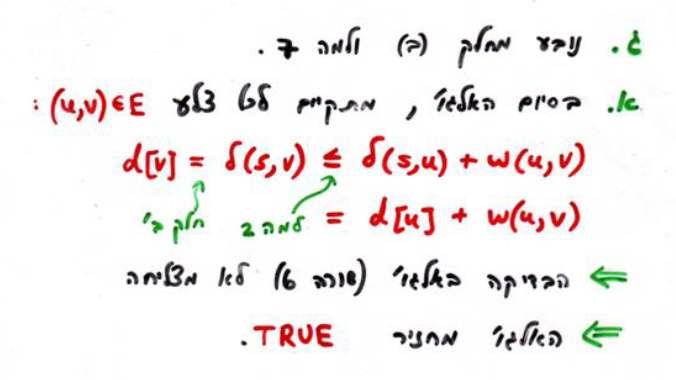 ג. נובע מחלק (ב) ולמה 7.
א. בסיום האלגו', מתקיים לכל צלע (u,v)∈E :
d[v] = δ(s,v) ≤ δ(s,u) + w(u,v)
חלק ב' למה 2 = d[u] + w(u,v)
⇐ הבדיקה באלגו' (שורה 6) לא מצליחה
⇐ האלגו' מחזיר TRUE.